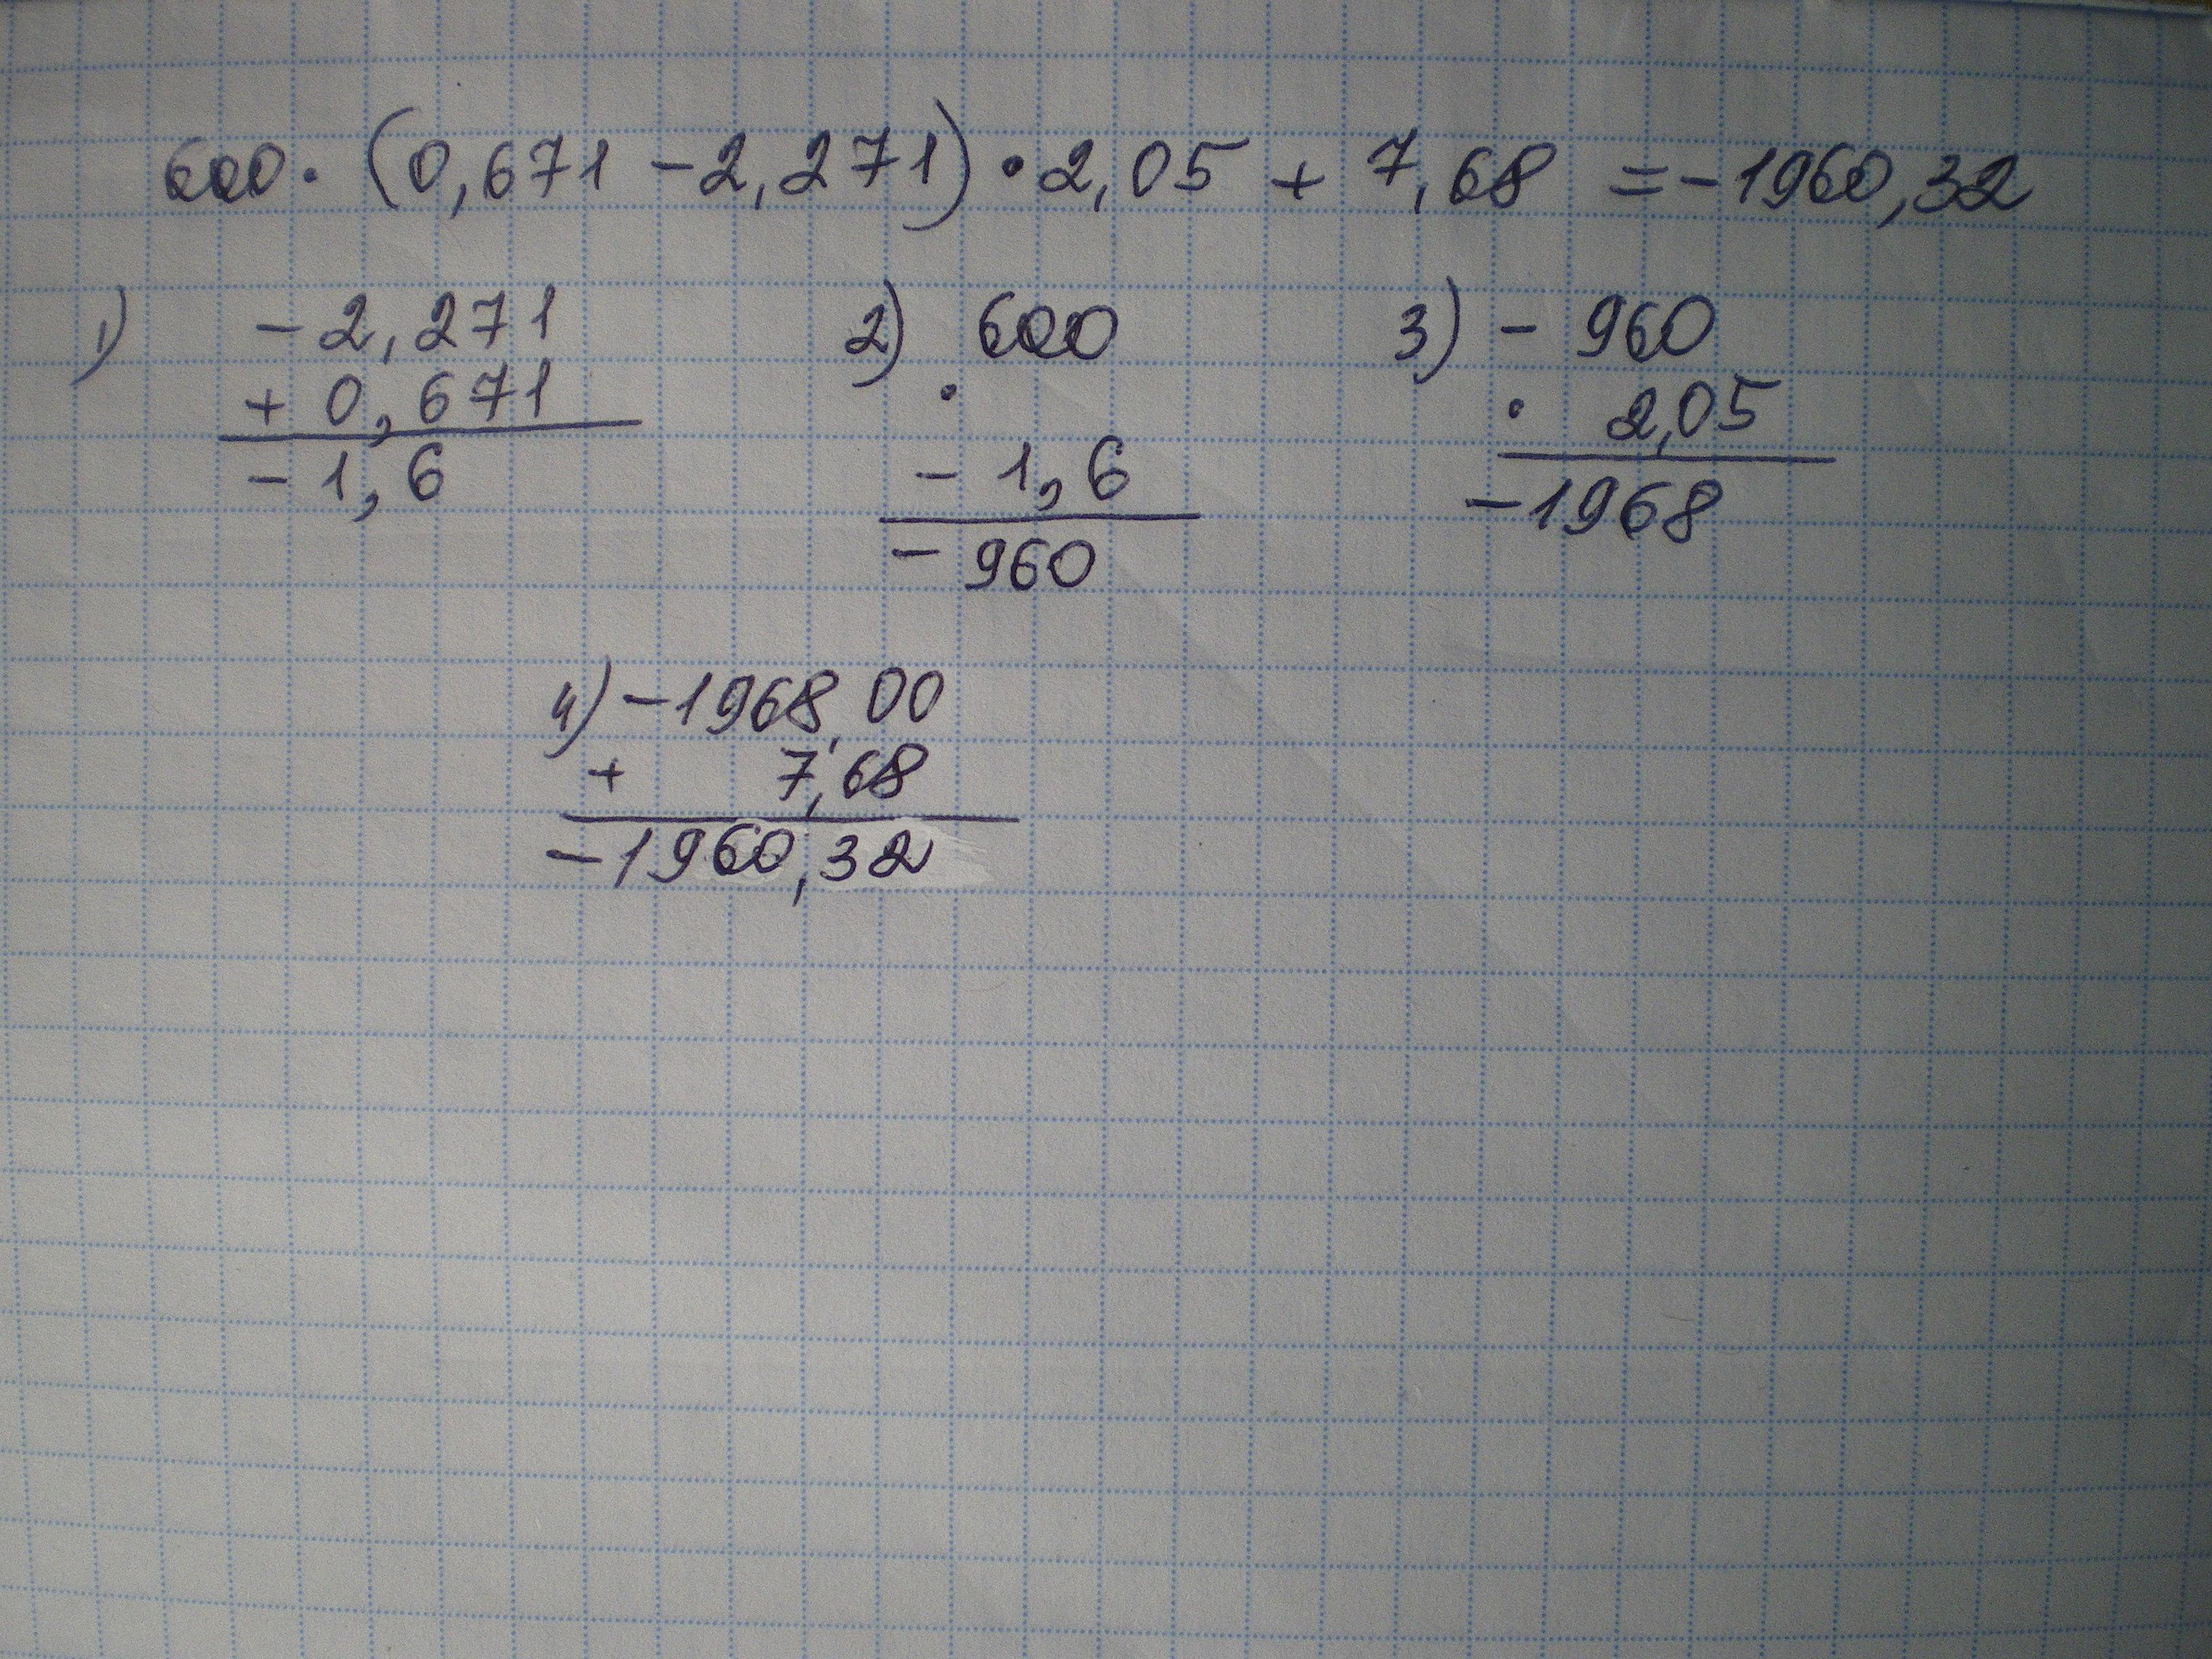 600 · (0,671 - 2,271) · 2,05 + 7,68 = -1960,32
1) -2,271
+ 0,671
-1,6
2) 600
·
-1,6
-960
3) -960
· 2,05
-1968
4) -1968,00
+ 7,68
-1960,32